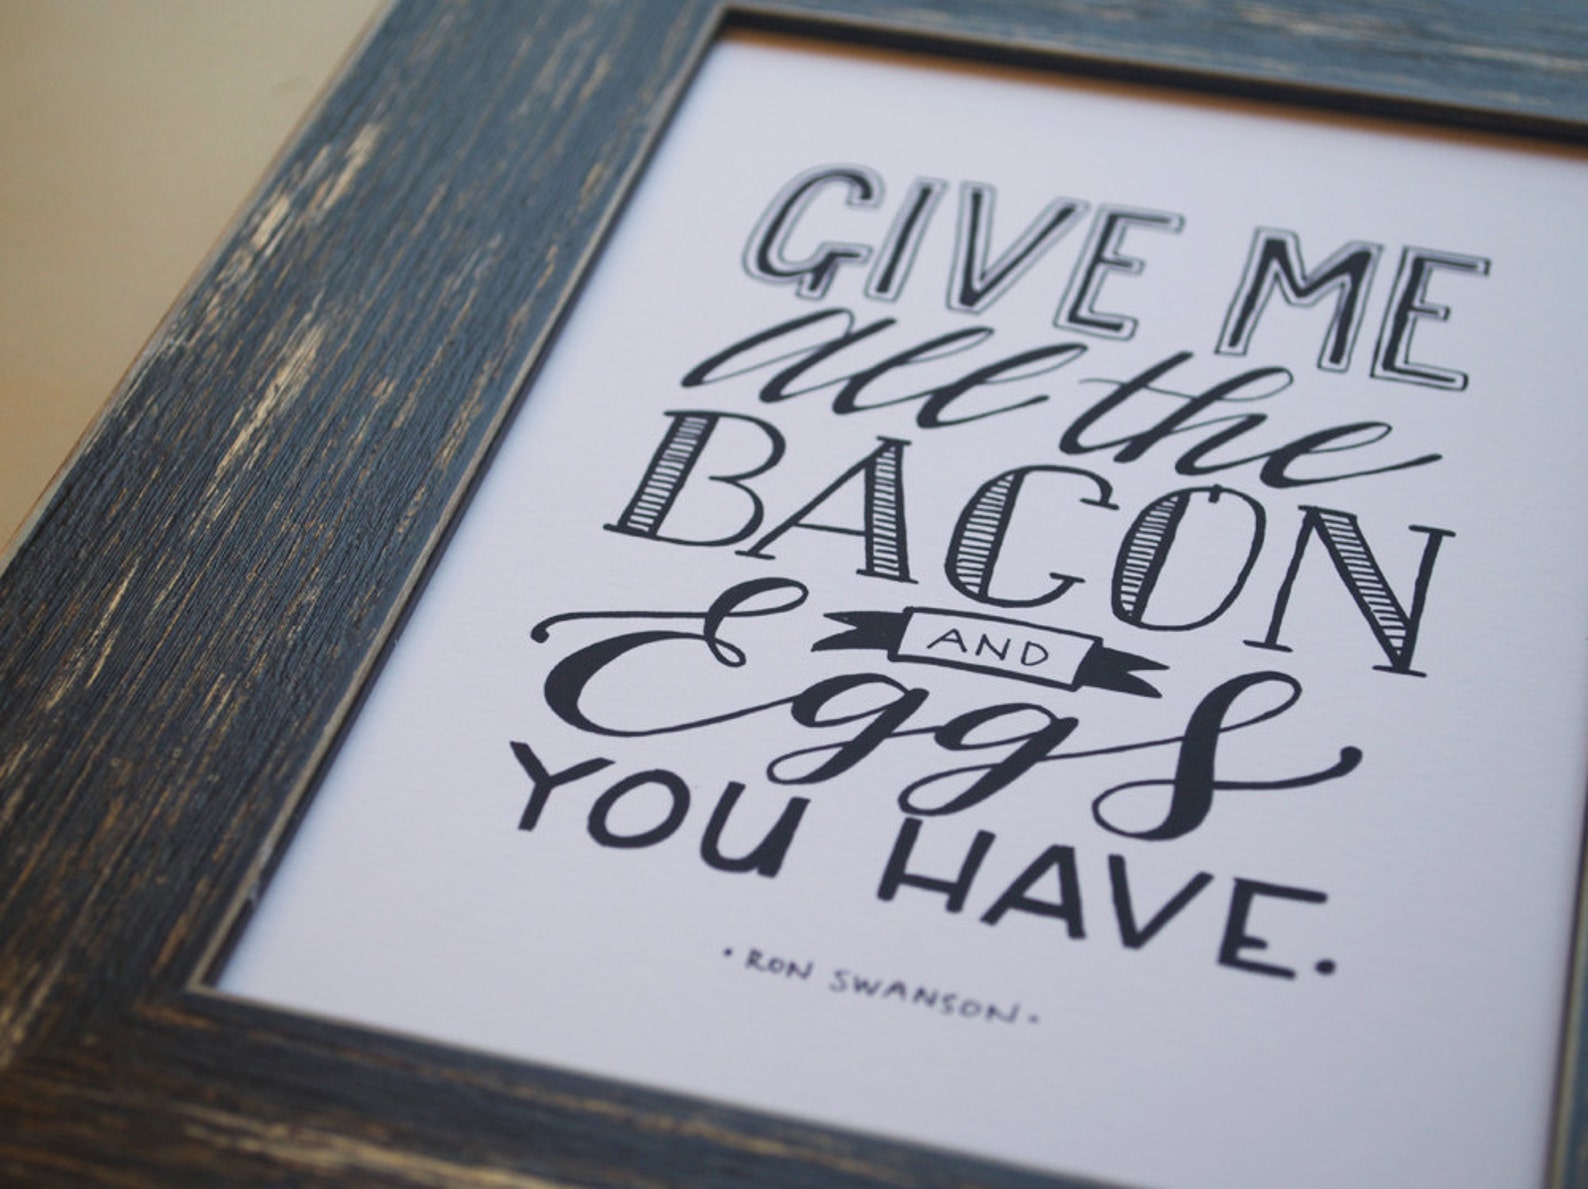 GIVE ME
all the
BACON
AND
Eggs
YOU HAVE.
• RON SWANSON •